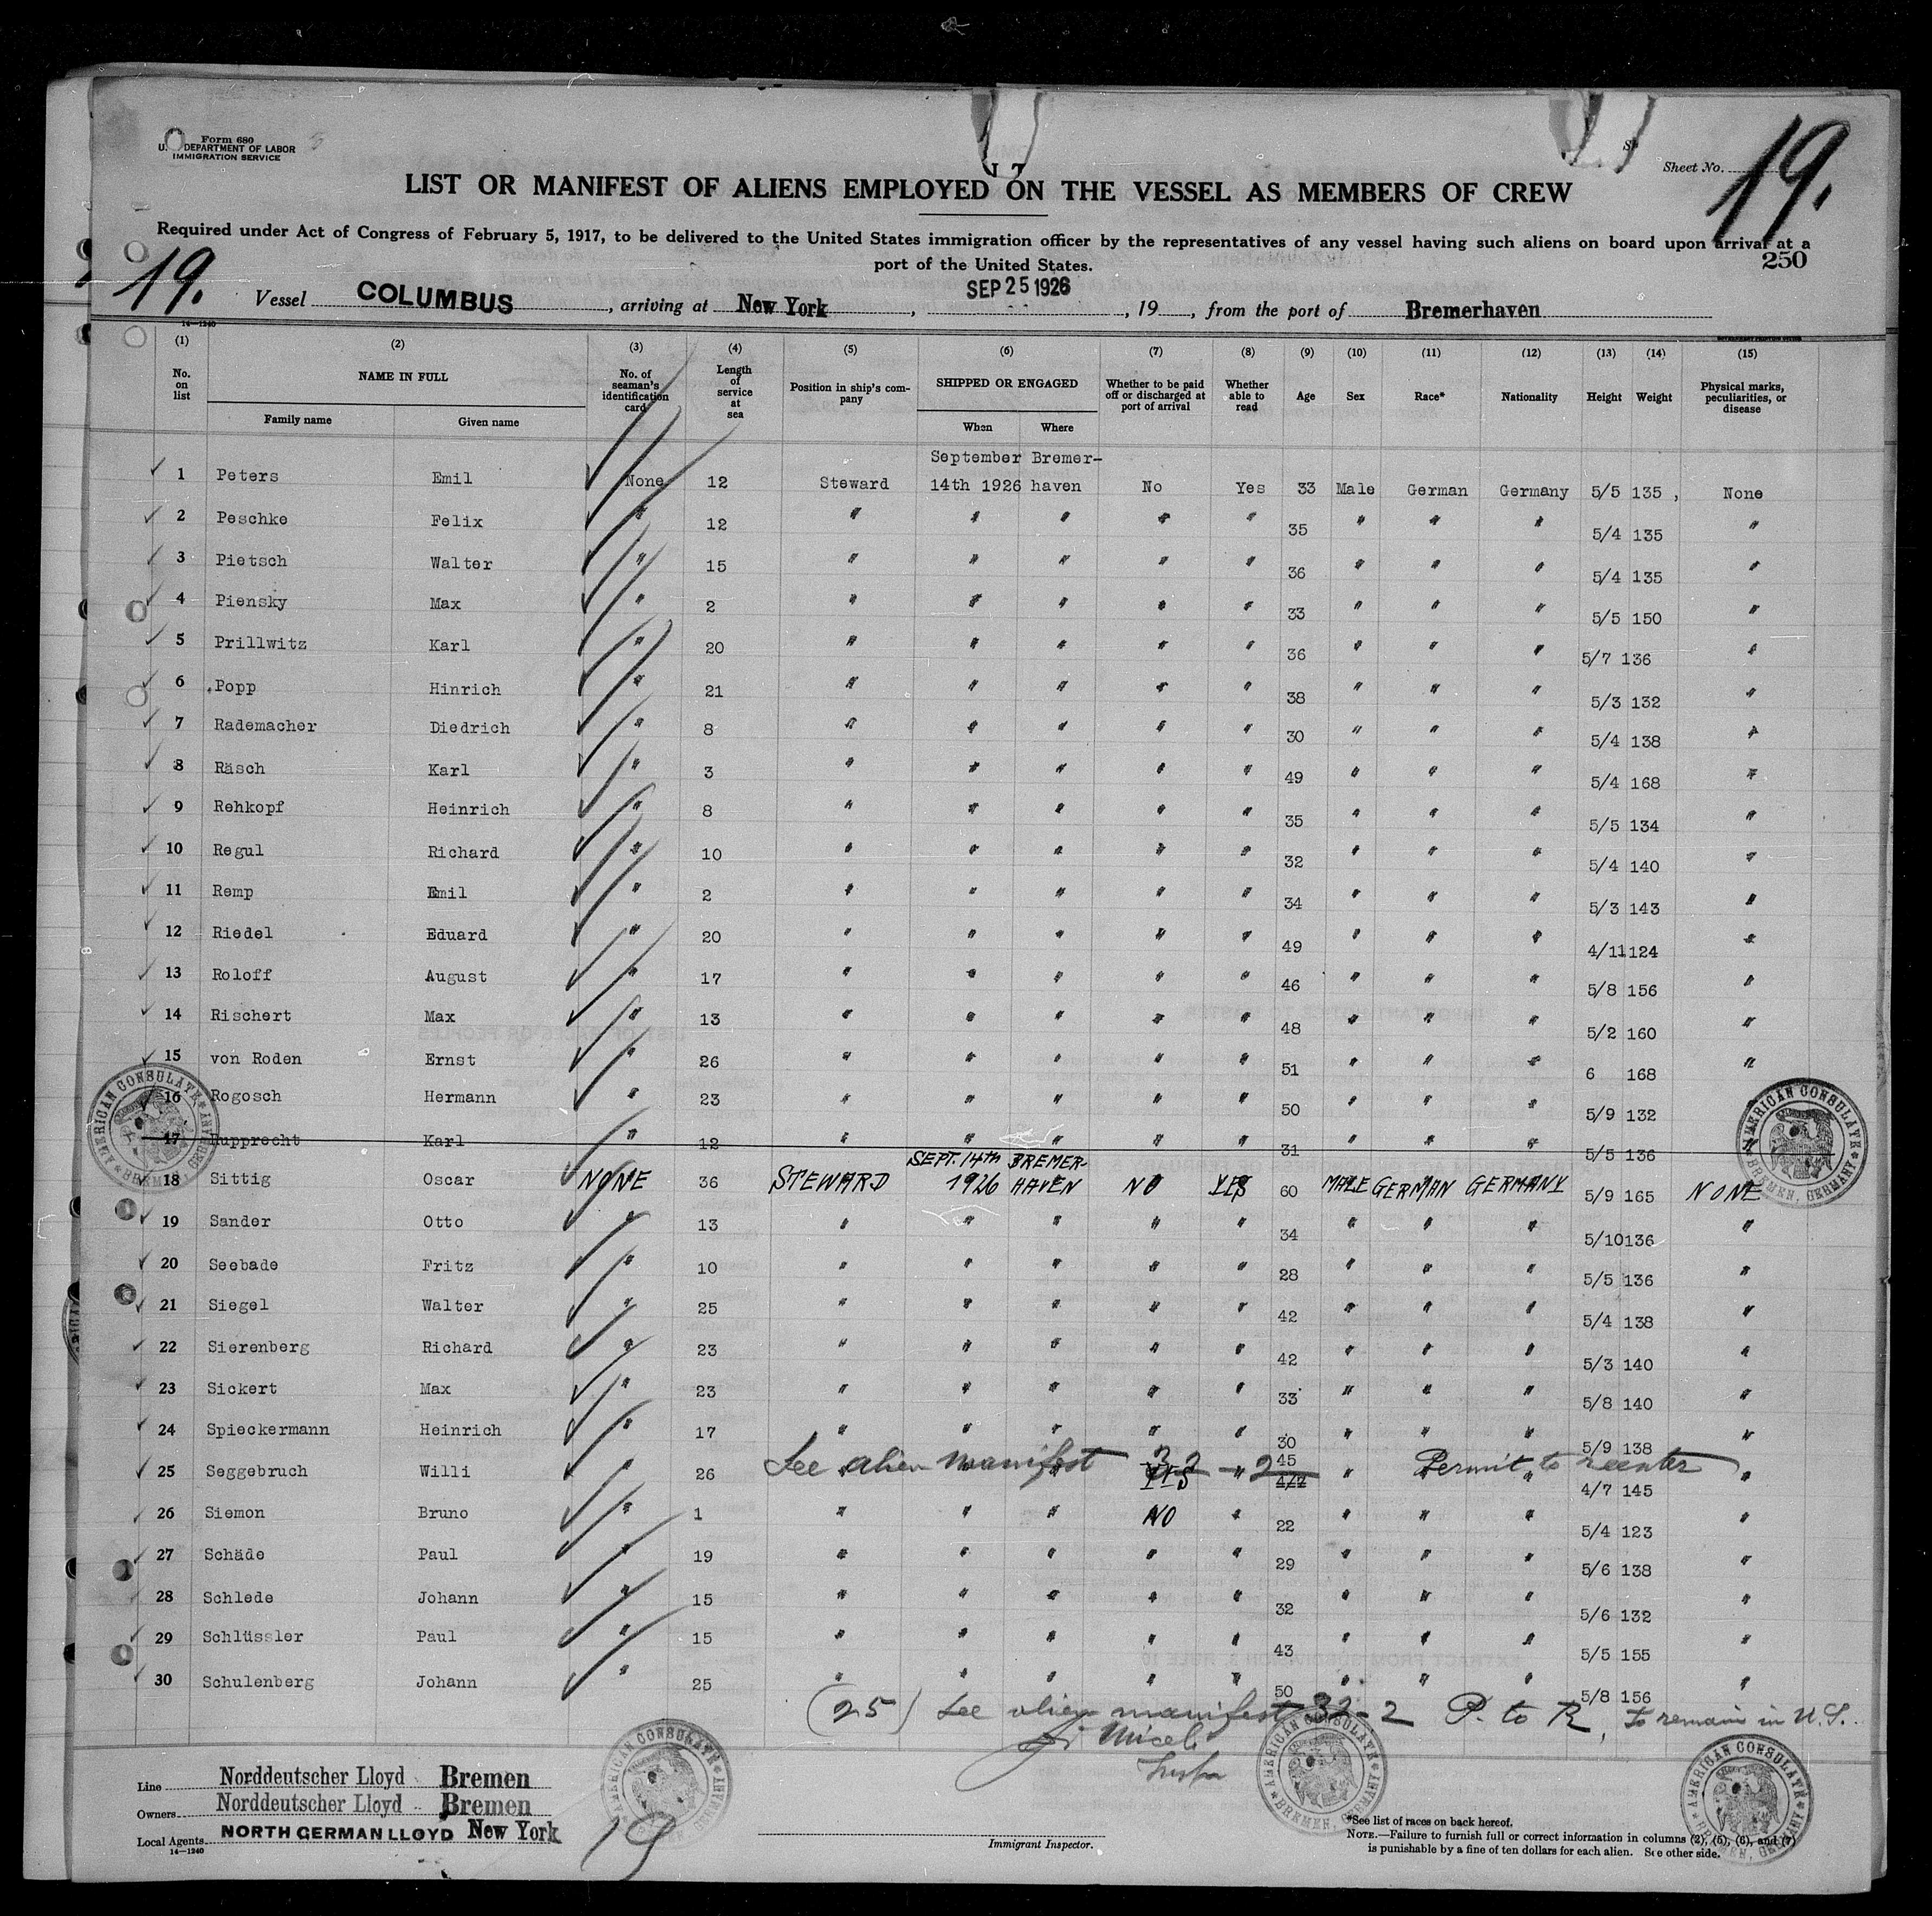 Form 680
U. DEPARTMENT OF LABOR
IMMIGRATION SERVICE
Sheet No. 19.
LIST OR MANIFEST OF ALIENS EMPLOYED ON THE VESSEL AS MEMBERS OF CREW
Required under Act of Congress of February 5, 1917, to be delivered to the United States immigration officer by the representatives of any vessel having such aliens on board upon arrival at a
port of the United States.
250
19. Vessel COLUMBUS, arriving at New York, SEP 25 1926, 19 , from the port of Bremerhaven
14—1240
(1) (2) (3) (4) (5) (6) (7) (8) (9) (10) (11) (12) (13) (14) (15)
No. on list NAME IN FULL Family name Given name No. of seaman's identification card Length of service at sea Position in ship's company SHIPPED OR ENGAGED When Where Whether to be paid off or discharged at port of arrival Whether able to read Age Sex Race* Nationality Height Weight Physical marks, peculiarities, or disease
September Bremer-
1 Peters Emil None 12 Steward 14th 1926 haven No Yes 33 Male German Germany 5/5 135 , None
2 Peschke Felix " 12 " " " " " 35 " " " 5/4 135 "
3 Pietsch Walter " 15 " " " " " 36 " " " 5/4 135 "
4 Piensky Max " 2 " " " " " 33 " " " 5/5 150 "
5 Prillwitz Karl " 20 " " " " " 36 " " " 5/7 136 "
6 Popp Hinrich " 21 " " " " " 38 " " " 5/3 132 "
7 Rademacher Diedrich " 8 " " " " " 30 " " " 5/4 138 "
8 Räsch Karl " 3 " " " " " 49 " " " 5/4 168 "
9 Rehkopf Heinrich " 8 " " " " " 35 " " " 5/5 134 "
10 Regul Richard " 10 " " " " " 32 " " " 5/4 140 "
11 Remp Emil " 2 " " " " " 34 " " " 5/3 143 "
12 Riedel Eduard " 20 " " " " " 49 " " " 4/11 124 "
13 Roloff August " 17 " " " " " 46 " " " 5/8 156 "
14 Rischert Max " 13 " " " " " 48 " " " 5/2 160 "
15 von Roden Ernst " 26 " " " " " 51 " " " 6 168 "
16 Rogosch Hermann " 23 " " " " " 50 " " " 5/9 132
17 Rupprecht Karl " 12 " " " " " 31 " " " 5/5 136
SEPT. 14th BREMER-
18 Sittig Oscar NONE 36 STEWARD 1926 HAVEN NO YES 60 MALE GERMAN GERMANY 5/9 165 NONE
19 Sander Otto " 13 " " " " " 34 " " " 5/10 136 "
20 Seebade Fritz " 10 " " " " " 28 " " " 5/5 136 "
21 Siegel Walter " 25 " " " " " 42 " " " 5/4 138 "
22 Sierenberg Richard " 23 " " " " " 42 " " " 5/3 140 "
23 Sickert Max " 23 " " " " " 33 " " " 5/8 140 "
24 Spieckermann Heinrich " 17 " " " " " 30 " " " 5/9 138 "
See alien manifest 32 - 2 Permit to reenter
25 Seggebruch Willi " 26 " " " YES " 45 4/7 " " " 4/7 145 "
26 Siemon Bruno " 1 " " " NO " 22 " " " 5/4 123 "
27 Schäde Paul " 19 " " " " " 29 " " " 5/6 138 "
28 Schlede Johann " 15 " " " " " 32 " " " 5/6 132 "
29 Schlüssler Paul " 15 " " " " " 43 " " " 5/5 155 "
30 Schulenberg Johann " 25 " " " " " 50 " " " 5/8 156 "
(25) See alien manifest 32-2 P. to R, To remain in U.S.
Line Norddeutscher Lloyd Bremen
Owners Norddeutscher Lloyd Bremen
Local Agents NORTH GERMAN LLOYD New York
14—1240
19
Immigrant Inspector.
*See list of races on back hereof.
NOTE.—Failure to furnish full or correct information in columns (2), (5), (6), and (7)
is punishable by a fine of ten dollars for each alien. See other side.
AMERICAN CONSULATE BREMEN, GERMANY
AMERICAN CONSULATE BREMEN, GERMANY
AMERICAN CONSULATE BREMEN, GERMANY
AMERICAN CONSULATE BREMEN, GERMANY
AMERICAN CONSULATE BREMEN, GERMANY